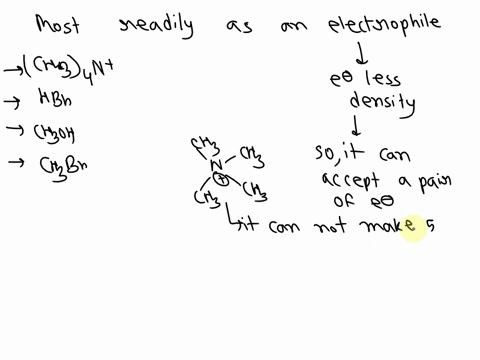 Most readily as an electrophile
→ (CH3)4N+
→ HBr
→ CH3OH
→ CH3Br
e⊖ less
density
so, it can
accept a pair
of e⊖
CH3
CH3
N
⊕
CH3
CH3
it can not make 5